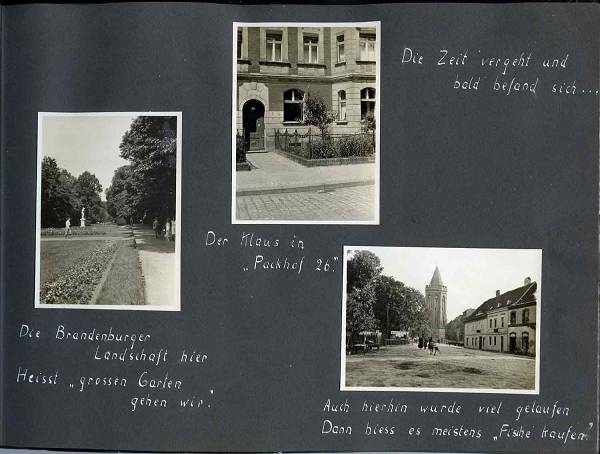 Die Zeit vergeht und
bald befand sich...
Der Klaus in
„Packhof 26."
Die Brandenburger
Landschaft hier
Heisst „grossen Garten
gehen wir."
Auch hierhin wurde viel gelaufen
Dann hiess es meistens „Fische kaufen."